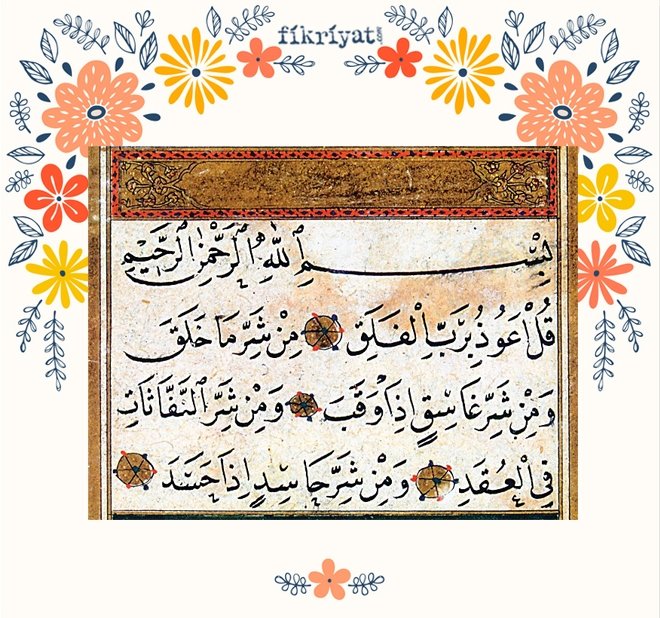 fikriyat.com
بِسْمِ ٱللّٰهِ ٱلرَّحْمٰنِ ٱلرَّحِيمِ
قُلْ اَعُوذُ بِرَبِّ الْفَلَقِ مِنْ شَرِّ مَا خَلَقَ
وَمِنْ شَرِّ غَاسِقٍ اِذَا وَقَبَ وَمِنْ شَرِّ النَّفَّاثَاتِ
فِي الْعُقَدِ وَمِنْ شَرِّ حَاسِدٍ اِذَا حَسَدَ